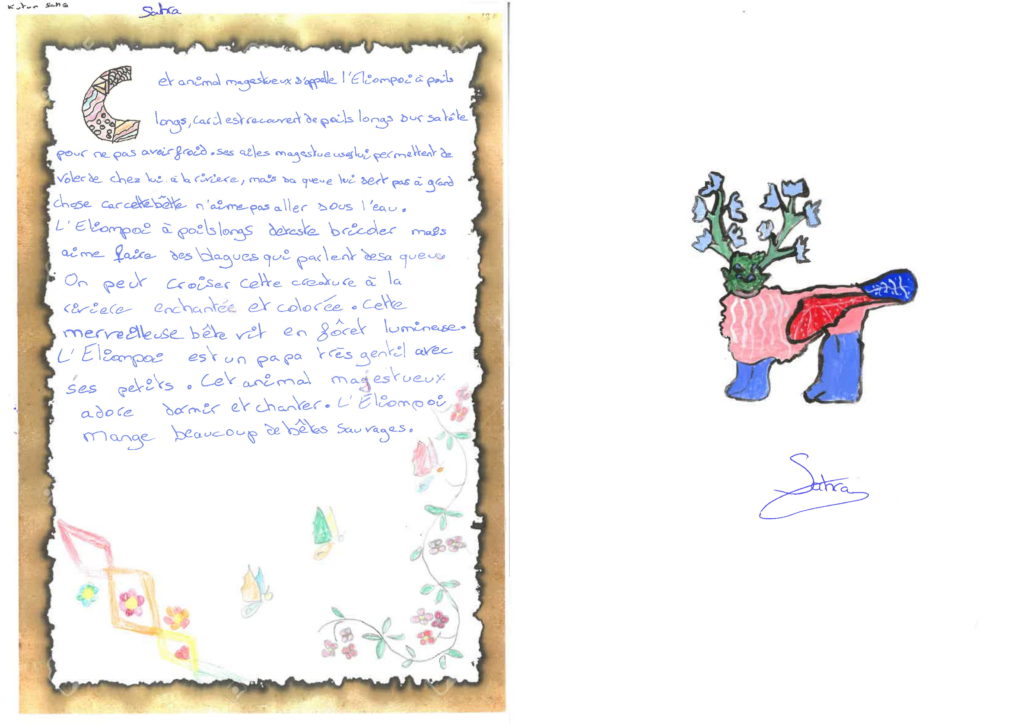 Satra
Cet animal magestueux s'appelle l'Eliompoi à poils
longs, car il est recouvert de poils longs sur sa tête
pour ne pas avoir froid. ses ailes magestueuses lui permettent de
voler de chez lui à la rivière, mais sa queue lui sert pas à grand
chose car cette bête n'aime pas aller sous l'eau.
L'Eliompoi à poils longs déteste bricoler mais
aime faire des blagues qui parlent de sa queue
On peut croiser cette creature à la
riviere enchantée et colorée. Cette
merveilleuse bête vit en fôret lumineuse.
L'Eliompoi est un papa très gentil avec
ses petits. Cet animal magestueux
adore dormir et chanter. L'Eliompoi
mange beaucoup de bêtes sauvages.
Satra